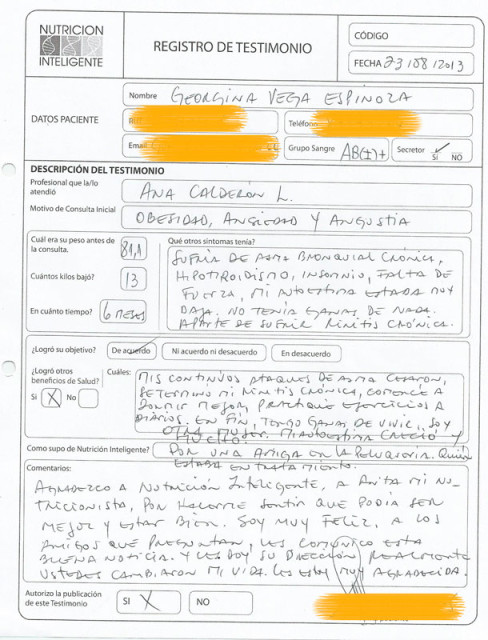 NUTRICION
INTELIGENTE
REGISTRO DE TESTIMONIO
CÓDIGO
FECHA 23/08/2013
DATOS PACIENTE
Nombre GEORGINA VEGA ESPINOZA
Teléfono
Email
Grupo Sangre AB(I)+
Secretor SÍ NO
DESCRIPCIÓN DEL TESTIMONIO
Profesional que la/lo atendió ANA CALDERÓN L.
Motivo de Consulta Inicial OBESIDAD, ANSIEDAD Y ANGUSTIA
Cuál era su peso antes de la consulta. 81,1
Cuántos kilos bajó? 13
En cuánto tiempo? 6 MESES
Qué otros síntomas tenía?
SUFRÍA DE ASMA BRONQUIAL CRÓNICA,
HIPOTIROIDISMO, INSOMNIO, FALTA DE
FUERZA, MI AUTOESTIMA ESTABA MUY
BAJA. NO TENÍA GANAS DE NADA.
APARTE DE SUFRIR RINITIS CRÓNICA.
¿Logró su objetivo? De acuerdo Ni acuerdo ni desacuerdo En desacuerdo
¿Logró otros beneficios de Salud? Si X No
Cuáles:
MIS CONTINUOS ATAQUES DE ASMA CESARON,
SE TERMINO MI RINITIS CRÓNICA, COMENCE A
DORMIR MEJOR, PRACTIQUE EJERCICIOS A
DIARIOS. EN FIN, TENGO GANAS DE VIVIR, SOY
OTRA MUJER. MI AUTOESTIMA CRECIÓ Y
MUCHO.
Como supo de Nutrición Inteligente? POR UNA AMIGA EN LA PELUQUERIA. QUIEN
ESTABA EN TRATAMIENTO.
Comentarios:
AGRADEZCO A NUTRICIÓN INTELIGENTE, A ANITA MI NU-
TRICIONISTA, POR HACERME SENTIR QUE PODÍA SER
MEJOR Y ESTAR BIEN. SOY MUY FELIZ, A LOS
AMIGOS QUE PREGUNTAN, LES COMUNICO ESTA
BUENA NOTICIA. Y LES DOY SU DIRECCIÓN, REALMENTE
USTEDES CAMBIARON MI VIDA. LES ESTOY MUY AGRADECIDA.
Autorizo la publicación de este Testimonio SI X NO